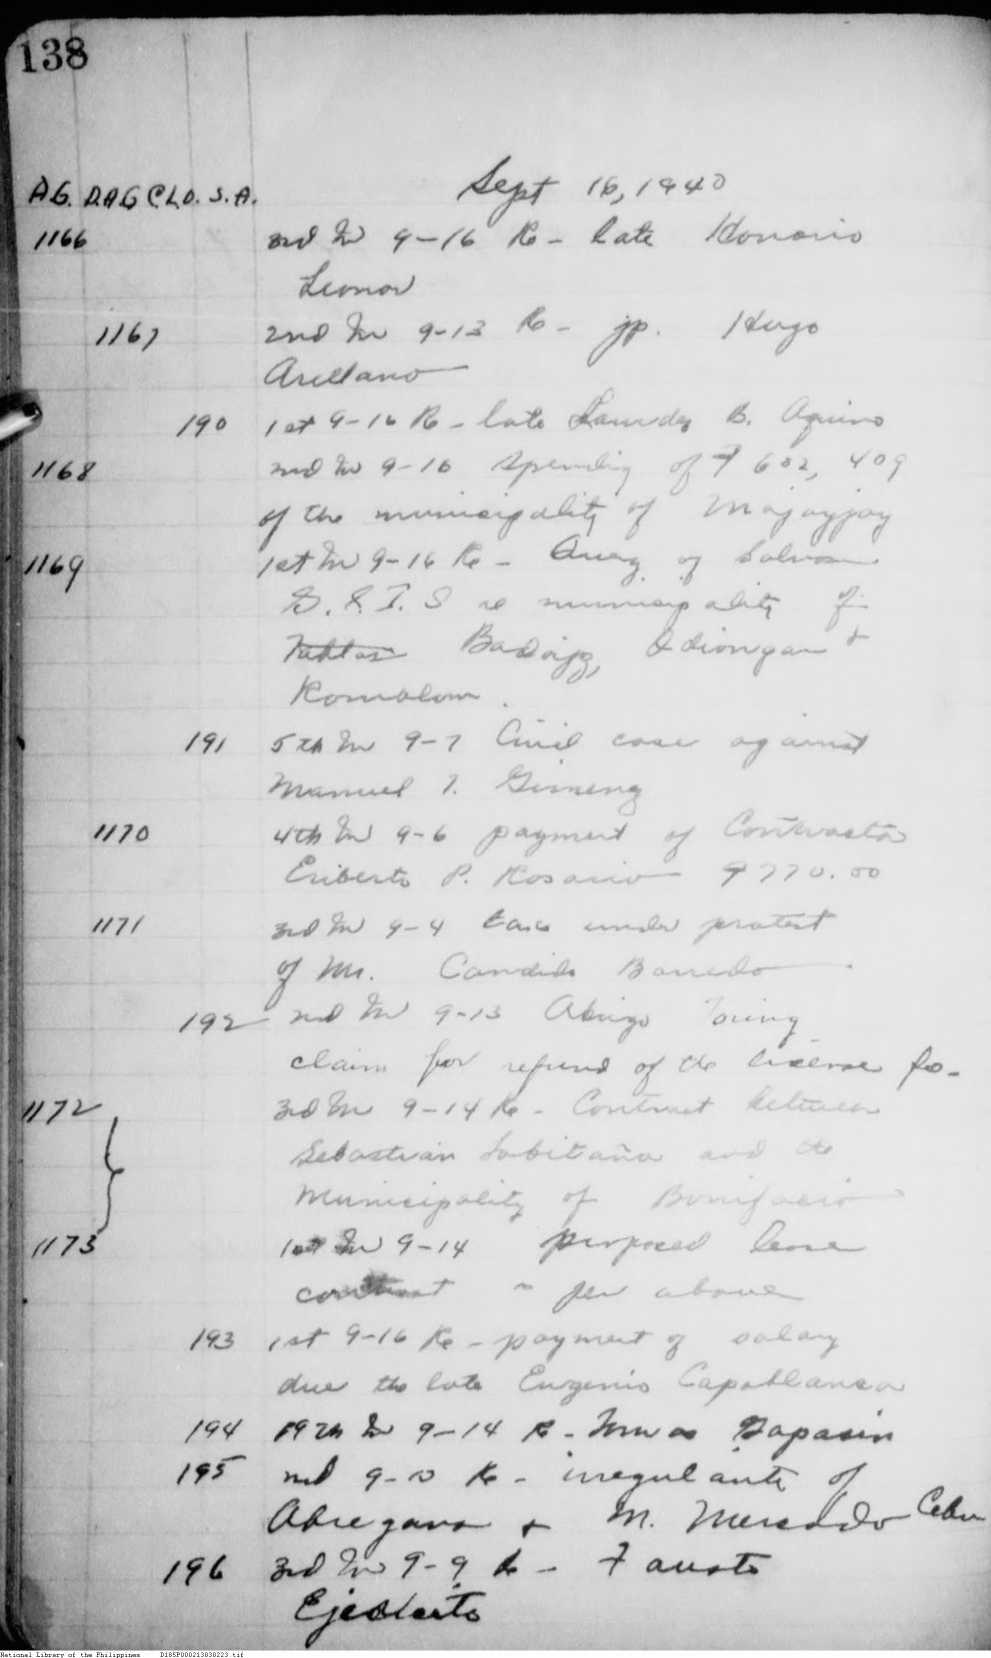 138
Sept 16, 1940
A.G. D.A.G C.L.O. S.A.
1166 3rd In 9-16 Re - late Honorio
Leonor
1167 2nd In 9-13 Re - jp. Hugo
Arellano
190 1st 9-16 Re - late Lourdes B. Aquino
1168 2nd In 9-16 Spending of ₱602,409
of the municipality of Majayjay
1169 1st In 9-16 Re - of
G.S.I.S re municipality of
Badajoz, Odiongan &
Romblon.
191 5th In 9-7 Civil case against
Manuel T. Gimeng
1170 4th In 9-6 payment of Contractor
Eriberto P. Rosario ₱770.00
1171 3rd In 9-4 taxes under protest
of Mr. Candido Barredo
192 2nd In 9-13
claim for refund of the license fee-
1172 3rd In 9-14 Re - Contract between
Sebastian Labitaña and the
Municipality of Bonifacio
1173 1st In 9-14 proposed lease
contract - per above
193 1st 9-16 Re - payment of salary
due the late Eugenio Capablanca
194 19th In 9-14 Re - Tomas Gapasin
195 2nd 9-10 Re - irregularity of
Abregana & M. Mercado Cebu
196 3rd In 9-9 Re - Fausto
National Library of the Philippines D185P000213838223.tif